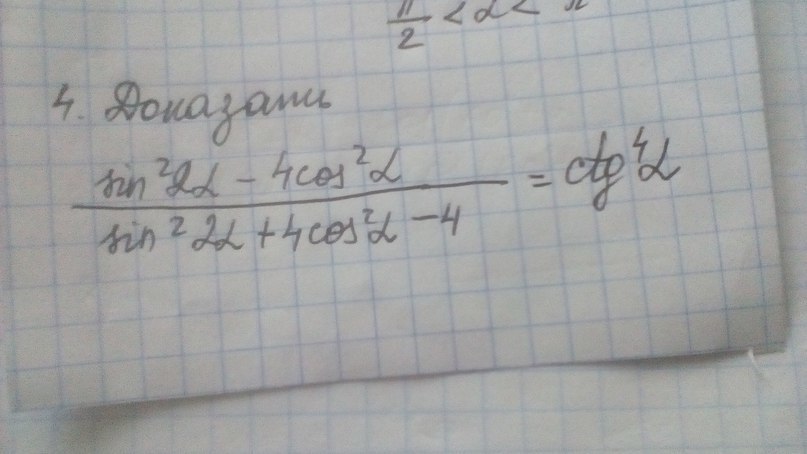 π/2 < α < π
4. Доказать
sin²2α - 4cos²α / sin²2α + 4cos²α - 4 = ctg⁴α